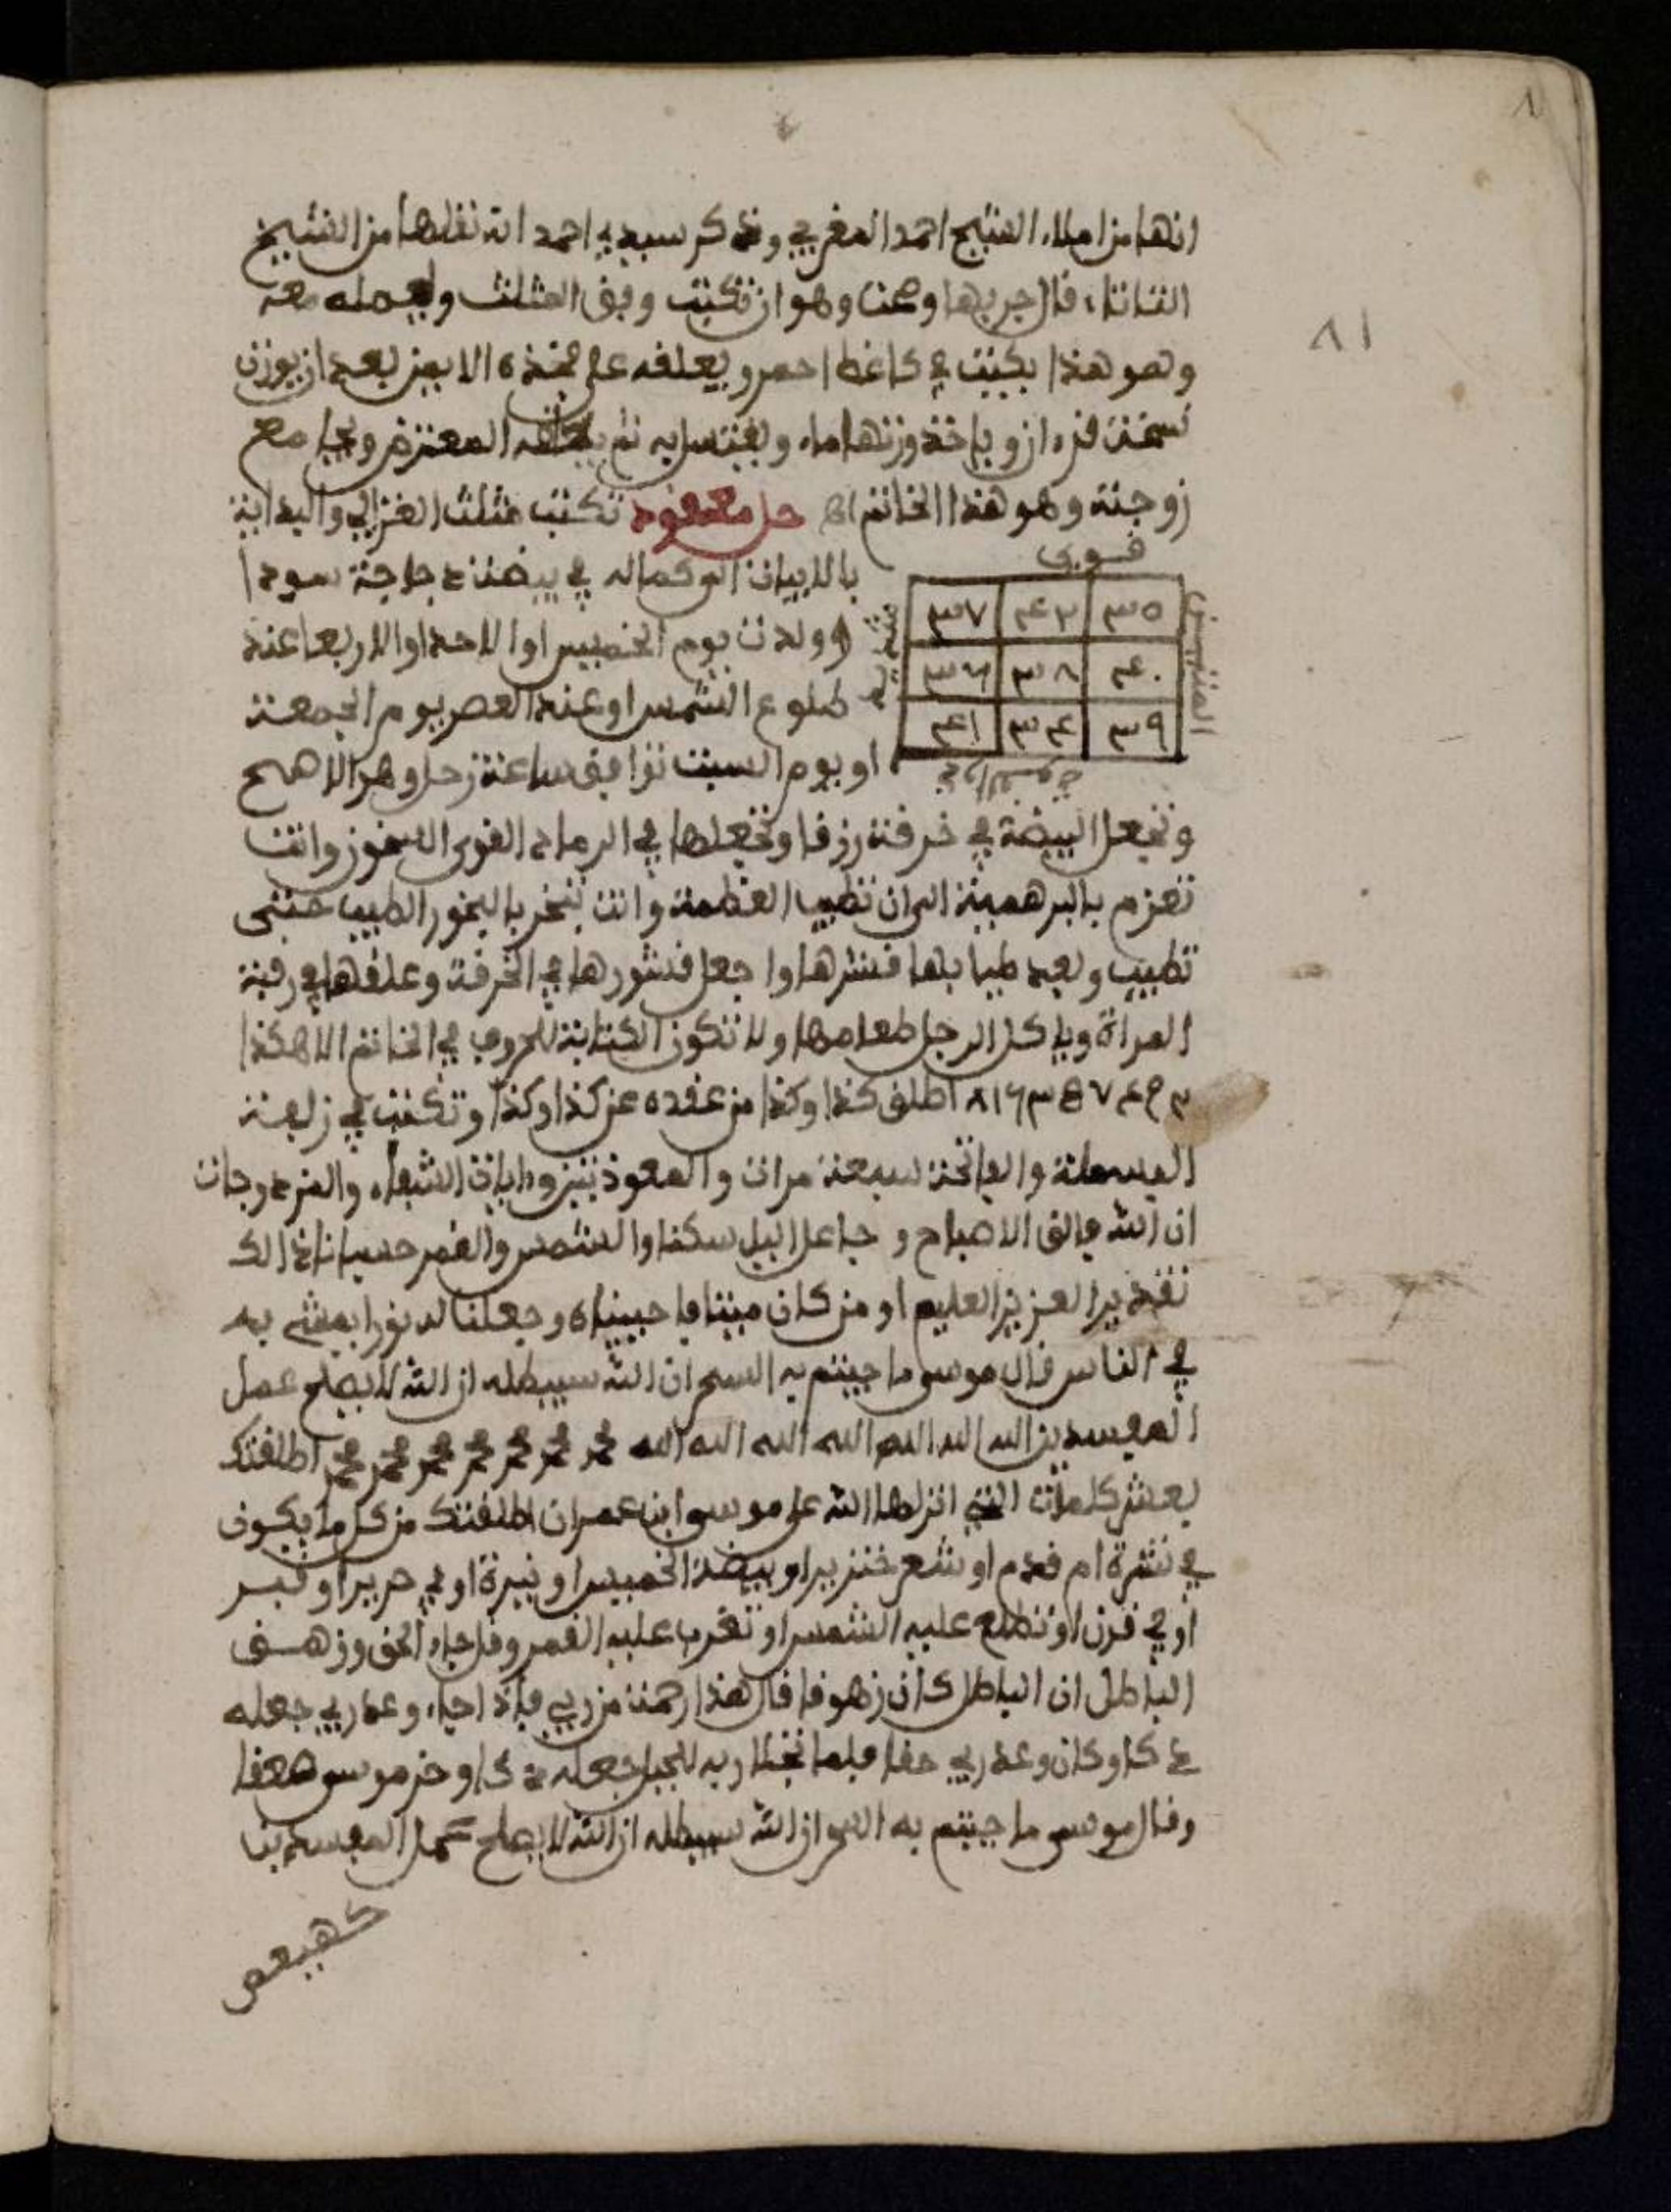 ٨١
انها من املاء الشيخ احمد المغربي وذكر سيدي احمد انه نقلها من الشيخ
قال جربها وصحت وهو ان تكتب وفق المثلث ويحمله معه
وهو هذا يكتب في كاغط احمر ويعلقه على فخذه الايمن بعد ان يوزن
وياخذ وزنها ماء ويغتسل به ثم يعلقه ويجامع
زوجته وهو هذا الخاتم اهـ حل معقود تكتب مثلث الغزالي والبداية
قوي
٣٥ ٤٢ ٣٧
٤٠ ٣٨ ٣٦
٣٩ ٣٤ ٤١
بالابيات الى كماله في بيضة دجاجة سودا
ولدت يوم الخميس او الاحد او الاربعا عند
طلوع الشمس او عند العصر يوم الجمعة
او يوم السبت توافق ساعة زحل وهو الاصح
وتجعل البيضة في خرقة زرقا وتجعلها في الرماد القوي السخون وانت
تعزم بالبرهمية الى ان تطيب العظمة وانت تبخر بالبخور الطيب حتى
تطيب وبعد طيابها قشرها واجعل قشورها في الخرقة وعلقها في رقبة
المراة وياكل الرجل طعامها ولا تكون الكتابة للحروف في الخاتم الا هكذا
٢ ٩ ٤ ٧ ٥ ٣ ٦ ١ ٨ اطلق كذا وكذا من عقده عن كذا وكذا وتكتب في زلفة
البسملة والفاتحة سبعة مرات والمعوذتين وايات الشفاء
ان الله فالق الاصباح وجاعل اليل سكنا والشمس والقمر حسبانا ذالك
تقدير العزيز العليم او من كان ميتا فاحييناه وجعلنا له نورا يمشي به
في الناس قال موسى ما جيتم به السحر ان الله سيبطله ان الله لا يصلح عمل
المفسدين الله الله الله الله الله الله الله محمد محمد محمد محمد محمد محمد محمد اطلقتك
بعشر كلمات التي انزلها الله على موسى ابن عمران اطلقتك من كل ما يكون
في نشرة ام قدم او شعر خنزير او بيضة الخميس او نيرة او في حرير او قبر
او في قرن او تطلع عليه الشمس او تغرب عليه القمر وقل جاء الحق وزهق
الباطل ان الباطل كان زهوقا قال هذا رحمة من ربي فاذا جاء وعد ربي جعله
دكا وكان وعد ربي حقا فلما تجلا ربه للجبل جعله دكا وخر موسى صعقا
وقال موسى ما جيتم به السحر ان الله سيبطله ان الله لا يصلح عمل المفسدين
كهيعص